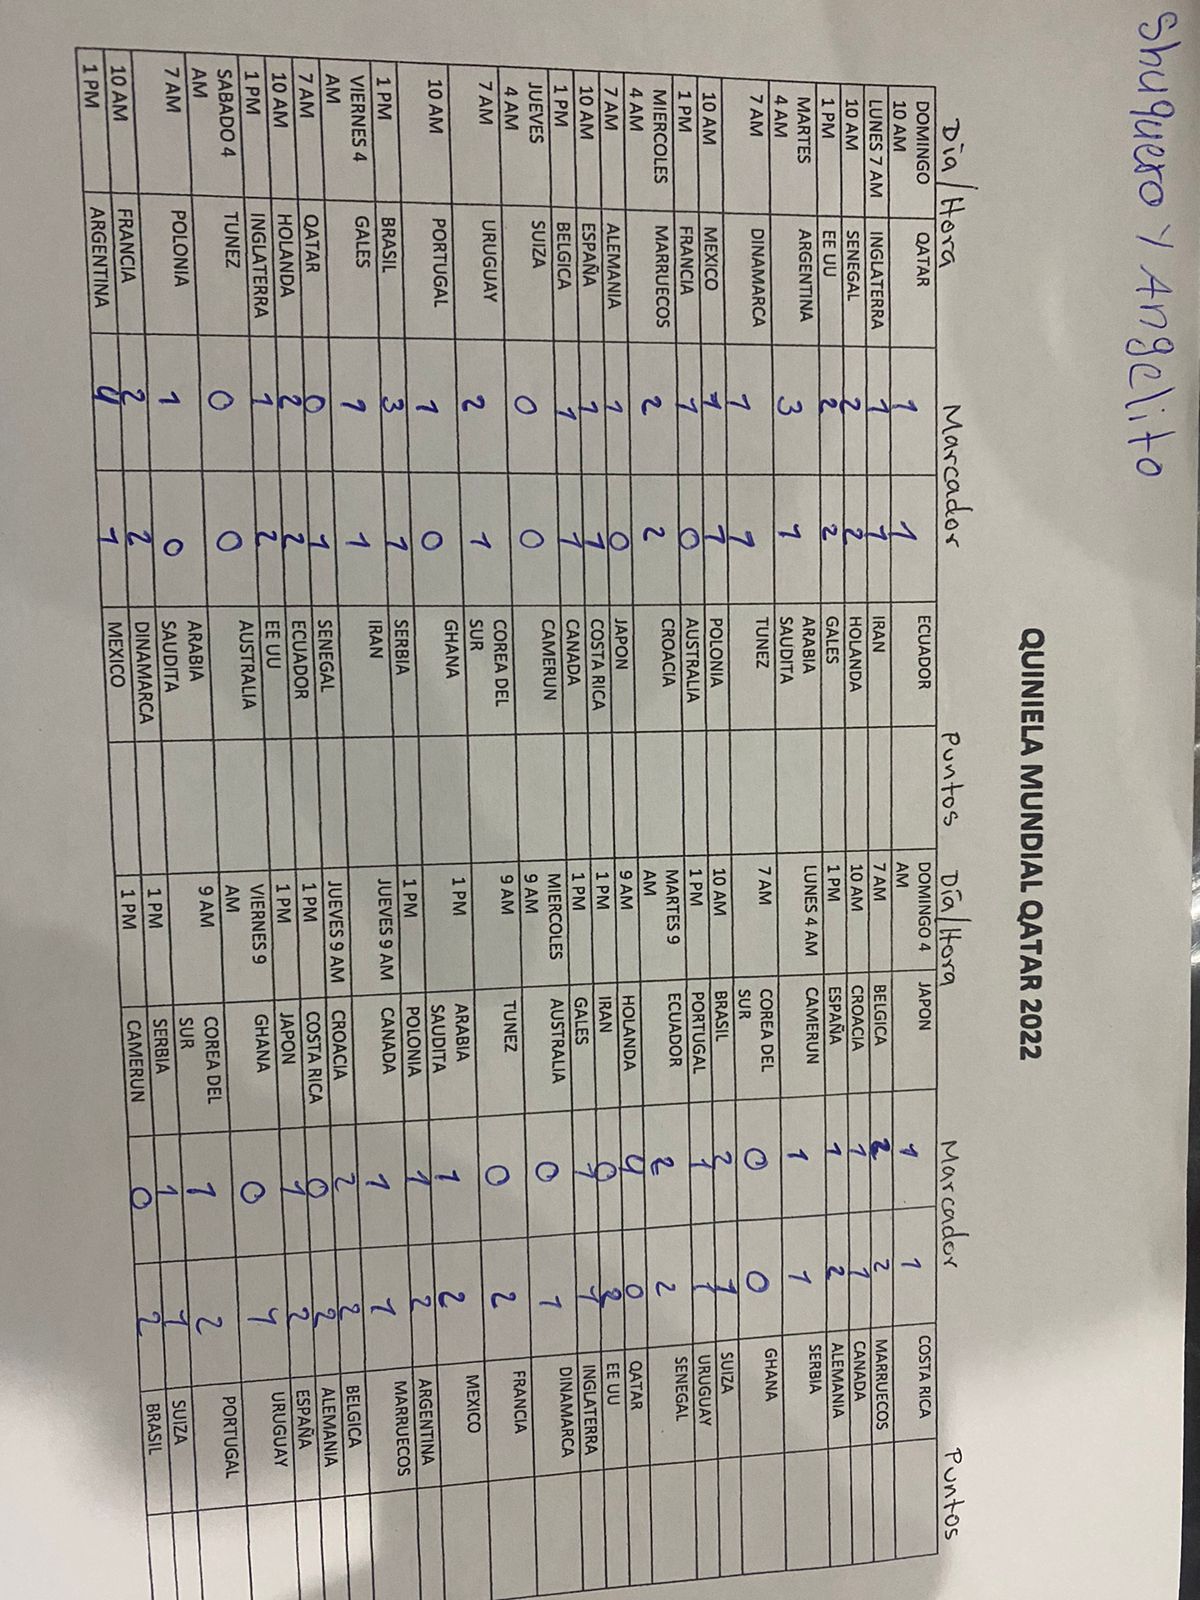 Shuquero Y Angelito
QUINIELA MUNDIAL QATAR 2022
Día/Hora Marcador Puntos Día/Hora Marcador Puntos
DOMINGO 10 AM QATAR 1 1 ECUADOR DOMINGO 4 AM JAPON 1 1 COSTA RICA
LUNES 7 AM INGLATERRA 1 1 IRAN 7 AM BELGICA 2 2 MARRUECOS
10 AM SENEGAL 2 2 HOLANDA 10 AM CROACIA 1 1 CANADA
1 PM EE UU 2 2 GALES 1 PM ESPAÑA 1 2 ALEMANIA
MARTES 4 AM ARGENTINA 3 1 ARABIA SAUDITA LUNES 4 AM CAMERUN 1 1 SERBIA
7 AM DINAMARCA 1 1 TUNEZ 7 AM COREA DEL SUR 0 0 GHANA
10 AM MEXICO 1 1 POLONIA 10 AM BRASIL 2 1 SUIZA
1 PM FRANCIA 1 0 AUSTRALIA 1 PM PORTUGAL 1 1 URUGUAY
MIERCOLES 4 AM MARRUECOS 2 2 CROACIA MARTES 9 AM ECUADOR 2 2 SENEGAL
7 AM ALEMANIA 1 0 JAPON 9 AM HOLANDA 4 0 QATAR
10 AM ESPAÑA 1 1 COSTA RICA 1 PM IRAN 0 EE UU
1 PM BELGICA 1 1 CANADA 1 PM GALES 1 1 INGLATERRA
JUEVES 4 AM SUIZA 0 0 CAMERUN MIERCOLES 9 AM AUSTRALIA 0 1 DINAMARCA
7 AM URUGUAY 2 1 COREA DEL SUR 9 AM TUNEZ 0 2 FRANCIA
10 AM PORTUGAL 1 0 GHANA 1 PM ARABIA SAUDITA 1 2 MEXICO
1 PM BRASIL 3 1 SERBIA 1 PM POLONIA 1 2 ARGENTINA
VIERNES 4 AM GALES 1 1 IRAN JUEVES 9 AM CANADA 1 1 MARRUECOS
7 AM QATAR 0 1 SENEGAL JUEVES 9 AM CROACIA 2 2 BELGICA
10 AM HOLANDA 2 2 ECUADOR 1 PM COSTA RICA 0 2 ALEMANIA
1 PM INGLATERRA 1 2 EE UU 1 PM JAPON 1 2 ESPAÑA
SABADO 4 AM TUNEZ 0 0 AUSTRALIA VIERNES 9 AM GHANA 0 1 URUGUAY
7 AM POLONIA 1 0 ARABIA SAUDITA 9 AM COREA DEL SUR 1 2 PORTUGAL
10 AM FRANCIA 2 2 DINAMARCA 1 PM SERBIA 1 1 SUIZA
1 PM ARGENTINA 4 1 MEXICO 1 PM CAMERUN 0 2 BRASIL